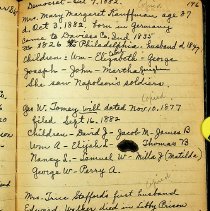 Democrat - Oct 7, 1882.
146
Mrs. Mary Margaret Kauffman, age 87
d. Oct 3, 1882. Born in Germany
Came to Daviess Co. Ind 1835
to 1826 to Philadelphia. Husband d. 1847.
Children: Wm - Elizabeth - George
Joseph - John - Martha
She saw Napoleon's soldiers.
Geo W. Tomey will dated Nov. 10, 1877
filed Sept. 16, 1882
Children - David J - Jacob M - James B
Wm A - Elijah L - Thomas B
Nancy L - Samuel W - Milla J (Matilda)
George W - Perry A.
Mrs. True Stafford's first husband
Edward Walker died in Libby Prison